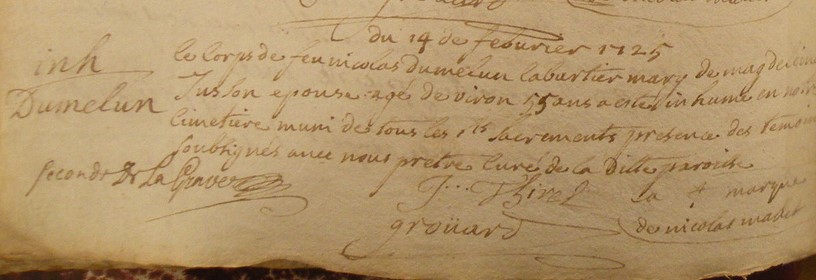 du 14 de feburier 1725
inh
Dumelun
le corps de feu nicolas dumelun laburtier mary de magdeleine
Jusson epouse agé de viron 55 ans a esté inhumé en notre
cimetiere muni de tous les sts sacrements presence des temoin
soubsignés avec nous pretre curé de la Ditte paroisse
seconde De La Grave
J. Thirel
la + marque
grouard
de nicolas madet